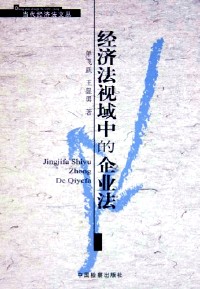 当代经济法文丛
单飞跃 王显勇 著
经济法视域中的企业法
Jingjifa Shiyu
Zhong
De Qiyefa
中国检察出版社